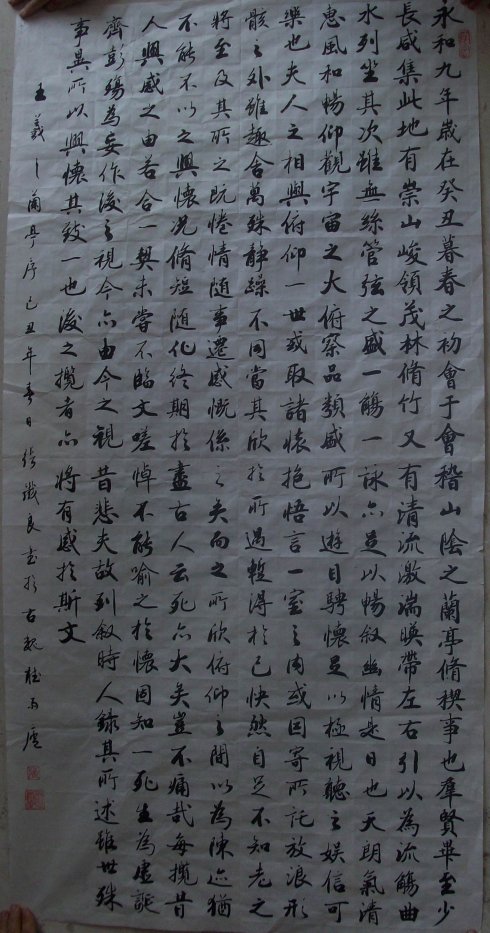 永和九年歲在癸丑暮春之初會于會稽山陰之蘭亭脩稧事也羣賢畢至少
長咸集此地有崇山峻領茂林脩竹又有清流激湍暎帶左右引以為流觴曲
水列坐其次雖無絲管弦之盛一觴一詠亦足以暢敘幽情是日也天朗氣清
惠風和暢仰觀宇宙之大俯察品類盛所以遊目騁懷足以極視聽之娛信可
樂也夫人之相與俯仰一世或取諸懷抱悟言一室之內或因寄所託放浪形
骸之外雖趣舍萬殊靜躁不同當其欣於所遇暫得於己快然自足不知老之
將至及其所之既惓情隨事遷感慨係之矣向之所欣俯仰之間以為陳迹猶
不能不以之興懷況脩短隨化終期於盡古人云死亦大矣豈不痛哉每攬昔
人興感之由若合一契未嘗不臨文嗟悼不能喻之於懷固知一死生為虛誕
齊彭殤為妄作後之視今亦由今之視昔悲夫故列敘時人錄其所述雖世殊
事異所以興懷其致一也後之攬者亦將有感於斯文
王羲之蘭亭序己丑年春日張識良書於古魏